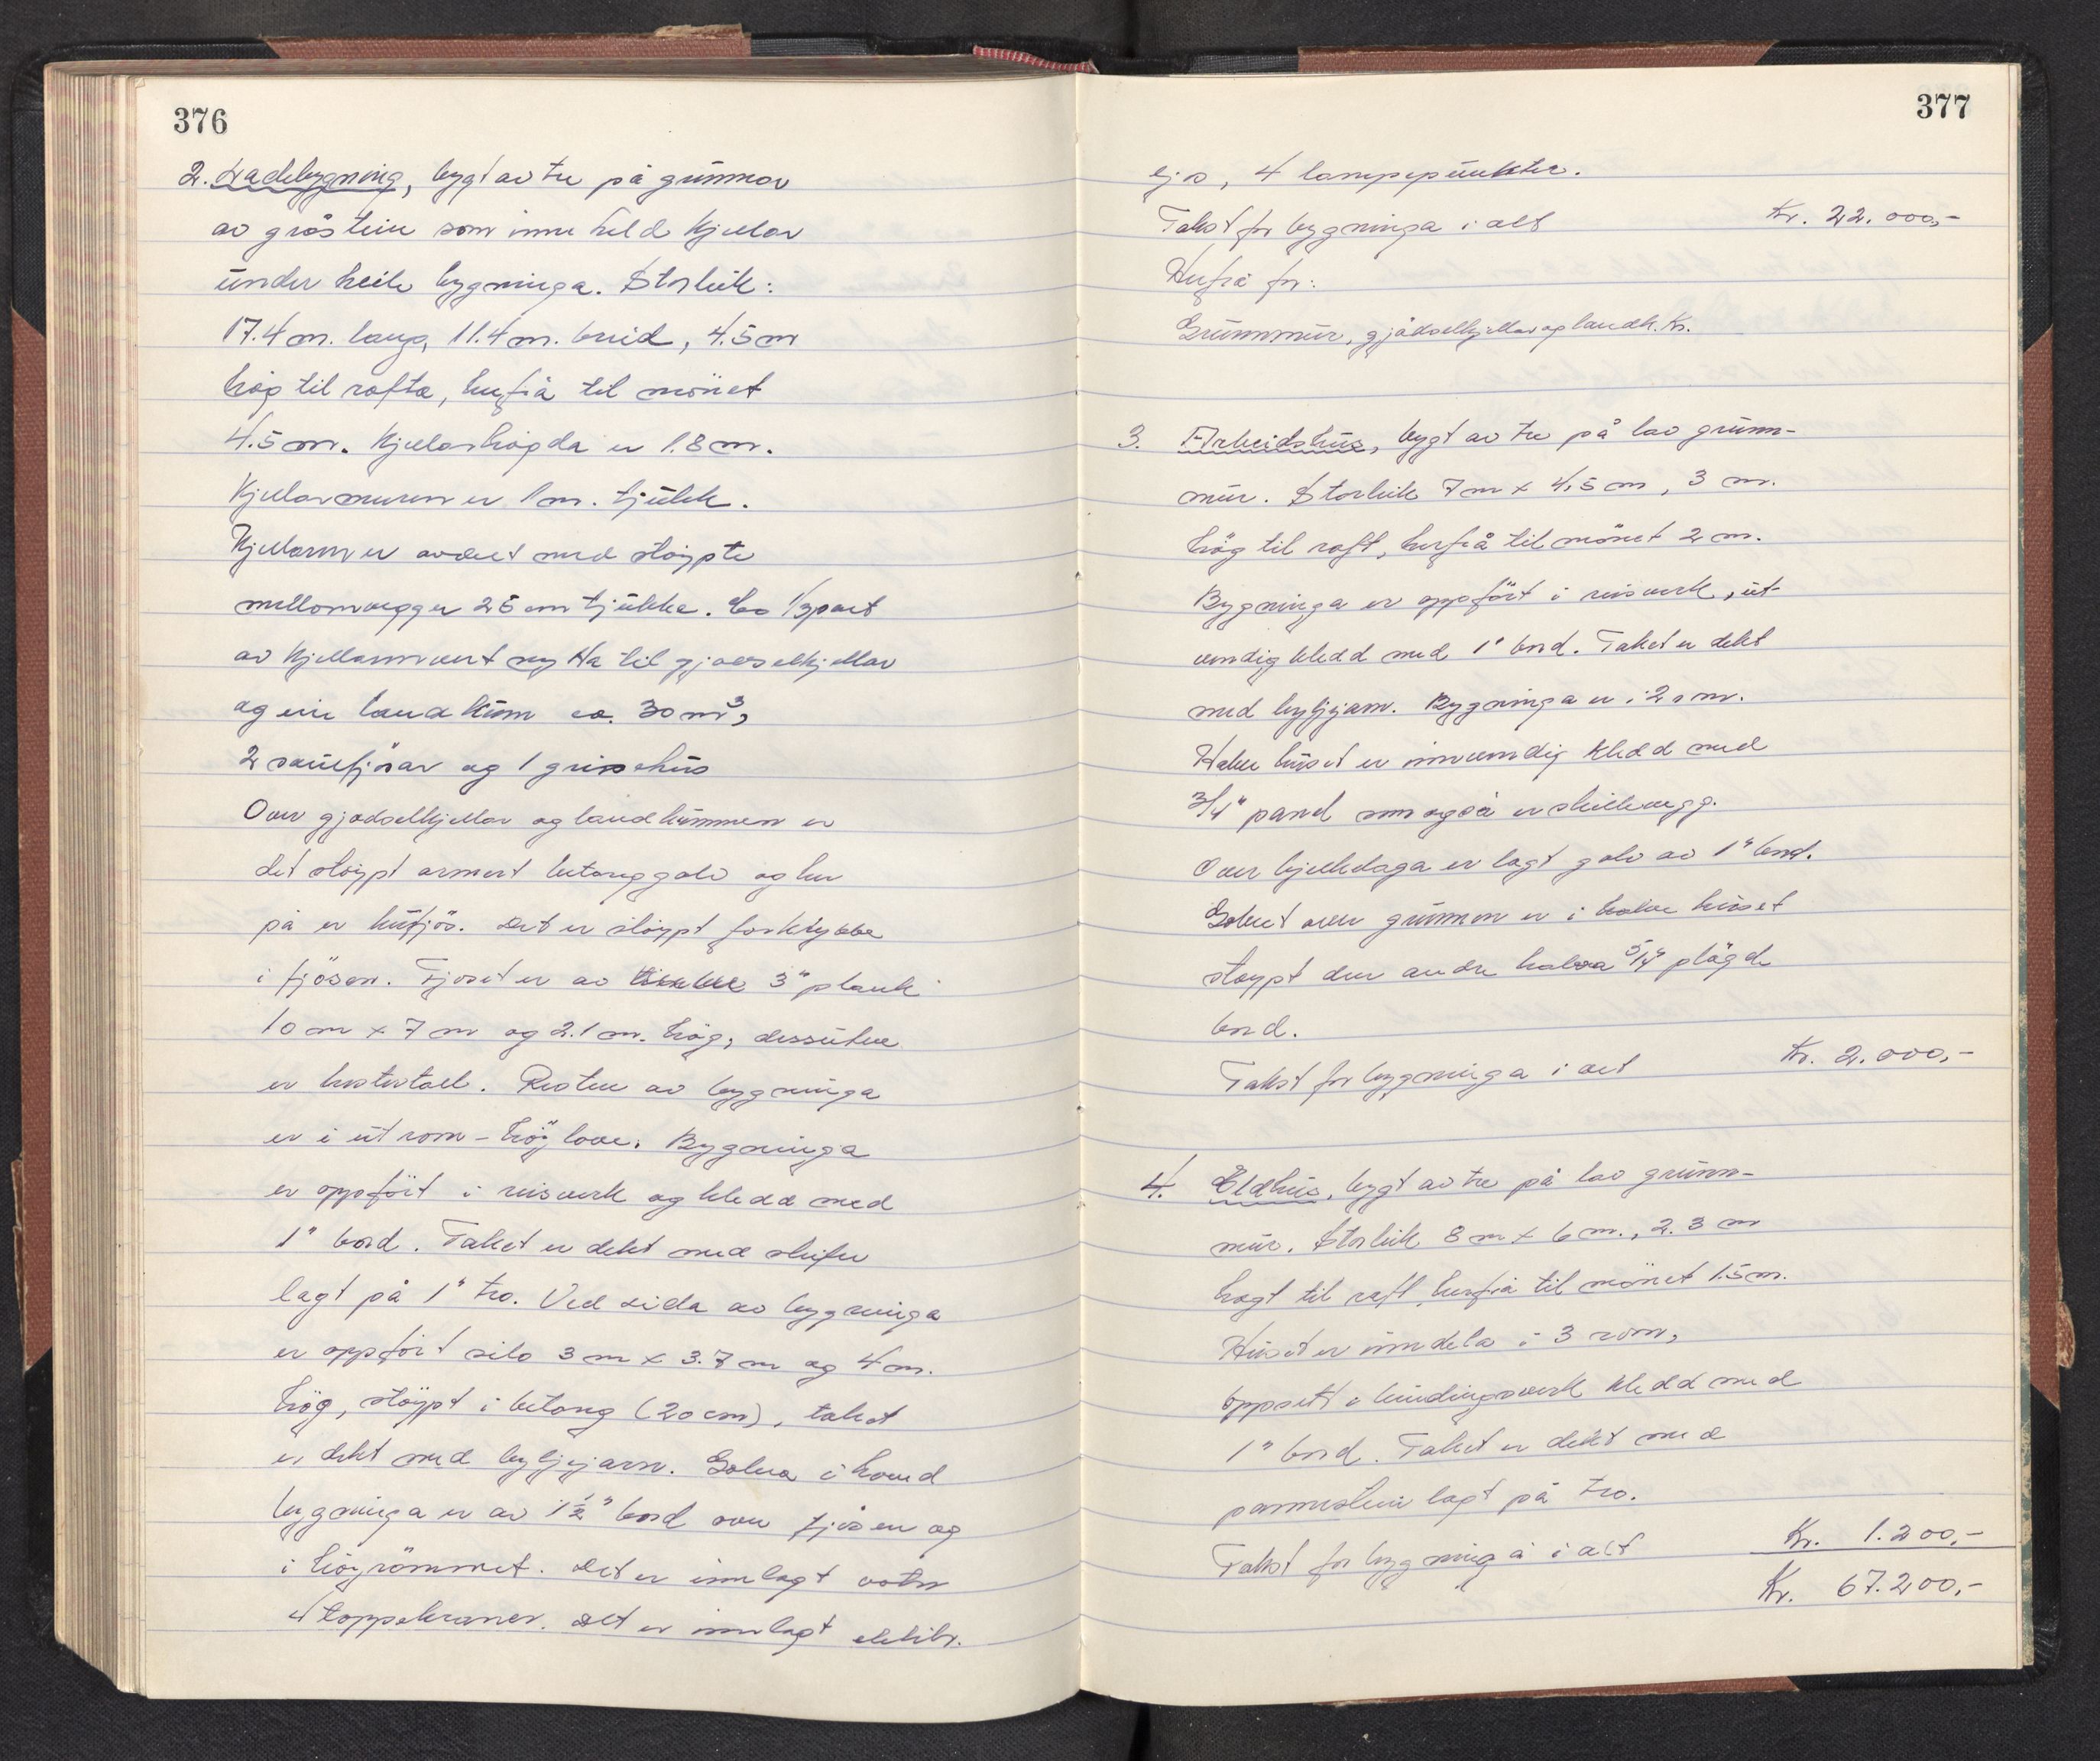 376
2. Ladebygning, bygt av tre på grunnar
av gråstein som inne held kjellar
under heile bygninga. Storleik:
17.4 m. lang, 11.4 m. breid, 4.5 m
høg til rafta, herfrå til mönet
4.5 m. Kjellarhøgda er 1.8 m.
Kjellarmuren er 1 m. tjukk.
Kjellarn er avdelt med støypte
mellomvegger 25 cm tjukke. Ca 1/3 part
av kjellarn vert nytta til gjødselkjellar
og ein landkum ca. 30 m³,
2 sauefjösar og 1 grisehus
Over gjødselkjellar og landkummen er
det støypt armert betonggolv og her
på er kufjös. Det er støypt forkrybbe
i fjösen. Fjoset er av 3" plank
10 m x 7 m og 2.1 m. høg, dessuten
er hestestall. Resten av bygninga
er i eit rom - höyløve. Bygninga
er oppfört i reisverk og kledd med
1" bord. Taket er dekt med skifer
lagt på 1" tro. Ved sida av bygninga
er oppfört silo 3 m x 3.7 m og 4 m.
høg, støypt i betong (20 cm), taket
er dekt med bylgjejarn. Golva i hovud
bygninga er av 1 1/2" bord over fjösen og
i höyrommet. Det er innlagt vatn
4 tappekraner. Det er innlagt elektr.
377
ljos, 4 lampepunkter.
Takst for bygninga i alt Kr. 22.000,-
Herfrå for:
Grunnmur, gjødselkjellar og landk. Kr.
3. Arbeidshus, bygt av tre på lav grunn-
mur. Storleik 7 m x 4,5 m, 3 m.
høg til raft, herfrå til mönet 2 m.
Bygninga er oppfört i reisverk, ut-
vendig kledd med 1" bord. Taket er dekt
med bylgjejarn. Bygninga er i 2 rom.
Halve huset er innvendig kledd med
3/4" panel som også er skillevegg.
Over bjelkelaga er lagt golv av 1" bord.
Golvet over grunnen er i halve huset
støypt den andre halva 5/4" pløgde
bord.
Takst for bygninga i alt Kr. 2.000,-
4. Eldhus, bygt av tre på lav grunn-
mur. Storleik 8 m x 6 m., 2.3 m
høgt til raft, herfrå til mönet 1.5 m.
Huset er inndela i 3 rom,
oppsett i bindingsverk kledd med
1" bord. Taket er dekt med
pannestein lagt på tro.
Takst for bygninga i alt Kr. 1.200,-
Kr. 67.200,-